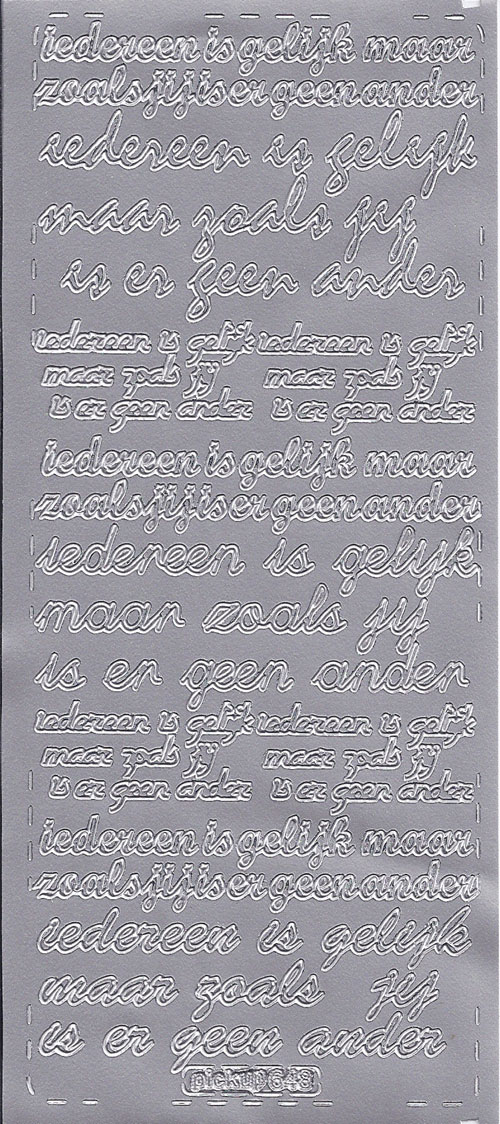 iedereen is gelijk maar
zoals jij is er geen ander
iedereen is gelijk
maar zoals jij
is er geen ander
iedereen is gelijk iedereen is gelijk
maar zoals jij maar zoals jij
is er geen ander is er geen ander
iedereen is gelijk maar
zoals jij is er geen ander
iedereen is gelijk
maar zoals jij
is er geen ander
iedereen is gelijk iedereen is gelijk
maar zoals jij maar zoals jij
is er geen ander is er geen ander
iedereen is gelijk maar
zoals jij is er geen ander
iedereen is gelijk
maar zoals jij
is er geen ander
pickup648